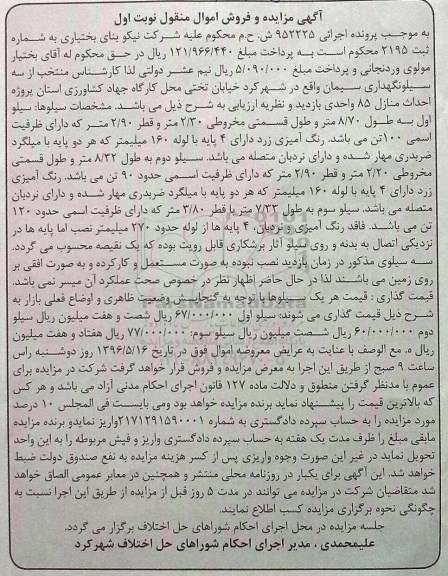 آگهی مزایده و فروش اموال منقول نوبت اول
به موجب پرونده اجرائی ۹۵۲۲۲۵ ش. ح.م محکوم علیه شرکت نیکو بنای بختیاری به شماره
ثبت ۲۱۹۵ محکوم است به پرداخت مبلغ ۱۲۱/۹۶۶/۴۴۰ ریال در حق محکوم له آقای بختیار
مولوی وردنجانی و پرداخت مبلغ ۵/۰۹۰/۰۰۰ ریال نیم عشر دولتی لذا کارشناس منتخب از سه
سیلونگهداری سیمان واقع در شهرکرد خیابان تختی محل کارگاه جهاد کشاورزی استان پروژه
احداث منازل ۸۵ واحدی بازدید و نظریه ارزیابی به شرح ذیل می باشد. مشخصات سیلوها: سیلو
اول به طول ۸/۷۰ متر و طول قسمتی مخروطی ۲/۳۰ متر و قطر ۲/۹۰ متر که دارای ظرفیت
اسمی ۱۰۰ تن می باشد. رنگ آمیزی زرد دارای ۴ پایه با لوله ۱۶۰ میلیمتر که هر دو پایه با میلگرد
ضربدری مهار شده و دارای نردبان متصله می باشد. سیلو دوم به طول ۸/۳۲ متر و طول قسمتی
مخروطی ۲/۲۰ متر و قطر ۲/۹۰ متر که دارای ظرفیت اسمی حدود ۹۰ تن می باشد. رنگ آمیزی
زرد دارای ۴ پایه با لوله ۱۶۰ میلیمتر که هر دو پایه با میلگرد ضربدری مهار شده و دارای نردبان
متصله می باشد. سیلو سوم به طول ۷/۳۳ متر با قطر ۳/۸۰ متر که دارای ظرفیت اسمی حدود ۱۲۰
تن می باشد. فاقد رنگ آمیزی و نردبان، ۴ پایه ها از لوله حدود ۲۷۰ میلیمتر نصب اما پایه ها در
نزدیکی اتصال به بدنه و روی سیلو آثار برشکاری قابل رویت بوده که یک نقیصه محسوب می گردد.
سه سیلوی مذکور در زمان بازدید نصب نبوده به صورت مستعمل و کارکرده و به صورت افقی بر
روی زمین می باشند لذا در حال حاضر اظهار نظر در خصوص صحت عملکرد آن میسر نمی باشد.
قیمت گذاری: قیمت هر یک از سیلوها با توجه به گنجایش وضعیت ظاهری و اوضاع فعلی بازار به
شرح ذیل قیمت گذاری می شوند: سیلو اول ۶۷/۰۰۰/۰۰۰ ریال شصت و هفت میلیون ریال سیلو
دوم ۶۰/۰۰۰/۰۰۰ ریال شصت میلیون ریال سیلو سوم: ۷۷/۰۰۰/۰۰۰ ریال هفتاد و هفت میلیون
ریال ه. مع الوصف با عنایت به عرایض معروضه اموال فوق در تاریخ ۱۳۹۶/۵/۱۶ روز دوشنبه راس
ساعت ۹ صبح از طریق این اجرا به معرض مزایده و فروش قرار خواهد گرفت شرکت در مزایده برای
عموم با مدنظر گرفتن منطوق و دلالت ماده ۱۲۷ قانون اجرای احکام مدنی آزاد می باشد و هر کس
که بالاترین قیمت را پیشنهاد نماید برنده مزایده خواهد بود ومی بایست فی المجلس ۱۰ درصد
مورد مزایده را به حساب سپرده دادگستری به شماره ۲۱۷۱۲۹۱۵۹۰۰۰۱ واریز نمایدو برنده مزایده
مابقی مبلغ را ظرف مدت یک هفته به حساب سپرده دادگستری واریز و فیش مربوطه را به این واحد
تحویل نماید در غیر این صورت وجوه واریزی پس از کسر هزینه مزایده به نفع صندوق دولت ضبط
خواهد شد. این آگهی برای یکبار در روزنامه محلی منتشر و همچنین در معابر عمومی الصاق خواهد
شد متقاضیان شرکت در مزایده می توانند در مدت ۵ روز قبل از مزایده از طریق این اجرا نسبت به
چگونگی نحوه برگزاری مزایده کسب اطلاع نمایند.
جلسه مزایده در محل اجرای احکام شوراهای حل اختلاف برگزار می گردد.
علیمحمدی ، مدیر اجرای احکام شوراهای حل اختلاف شهرکرد